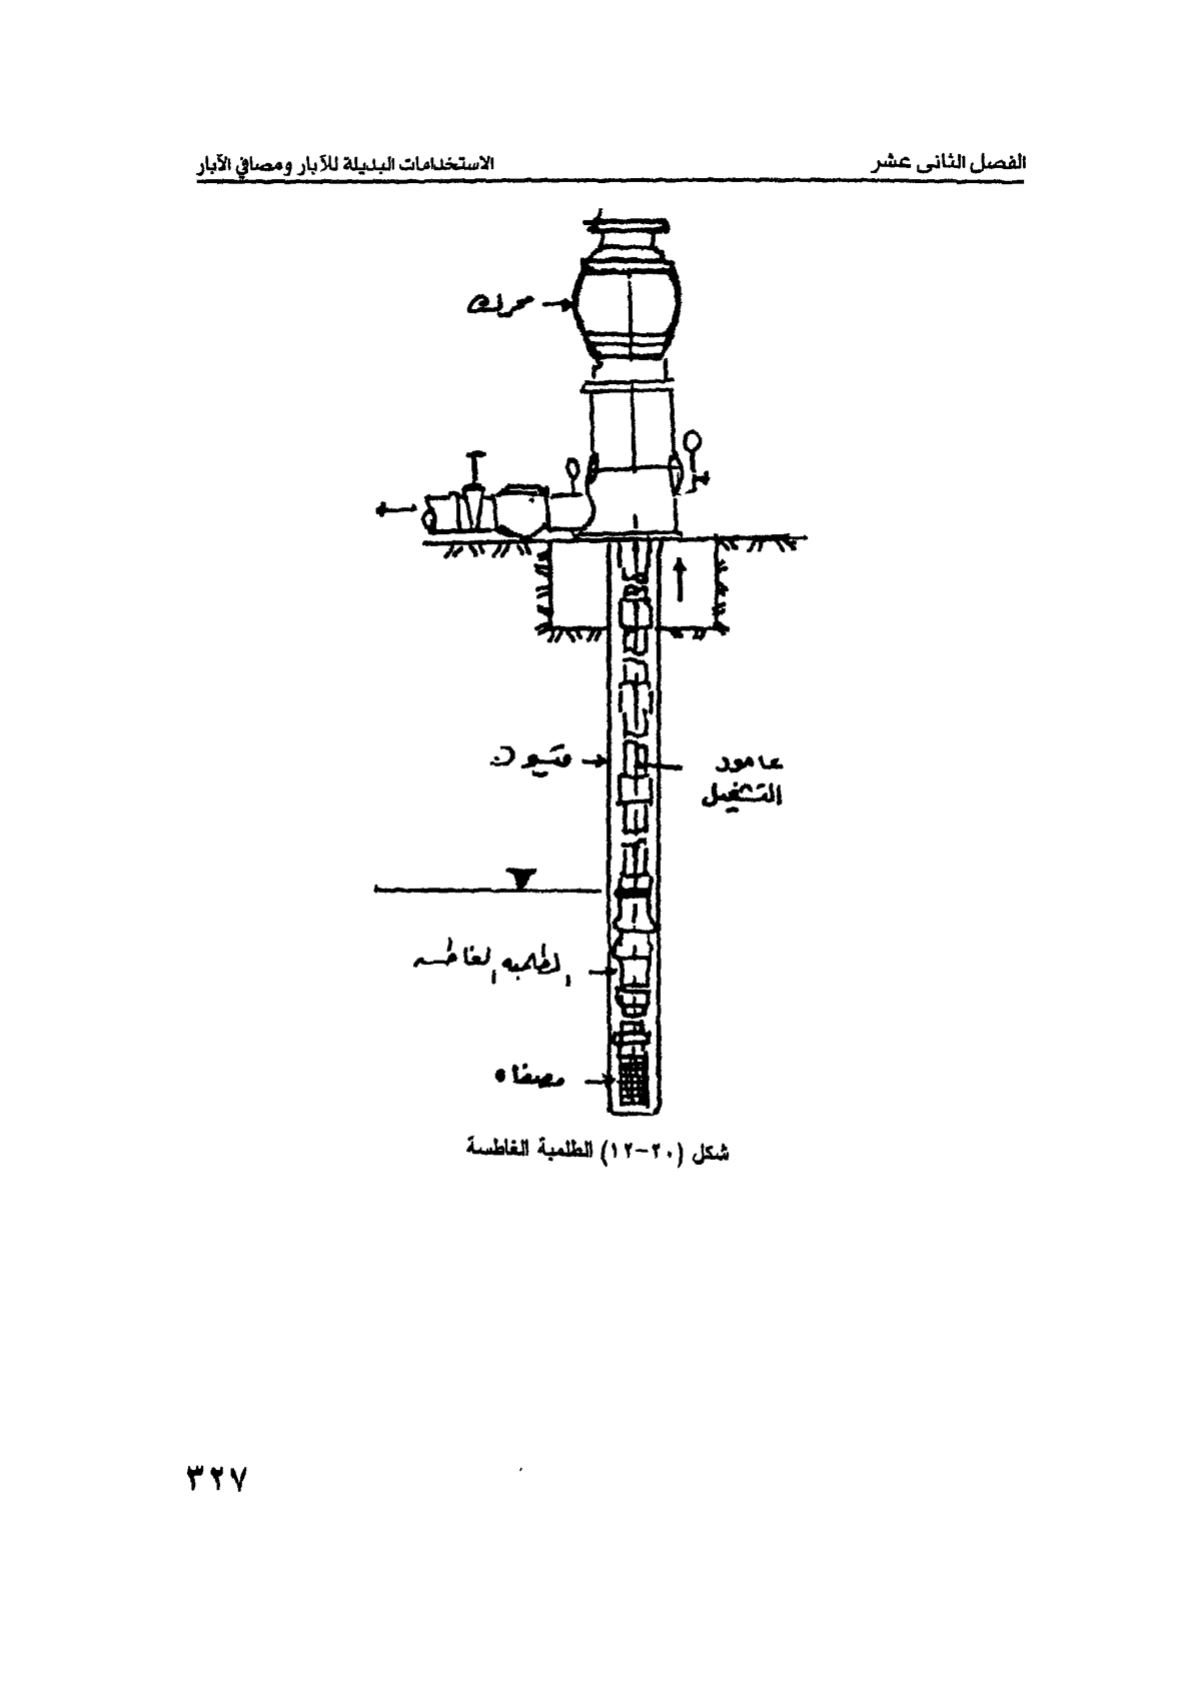 الفصل الثانى عشر
الاستخدامات البديلة للآبار ومصافي الآبار
محرك
عامود
التشغيل
الطلمبه الغاطسه
مصفاه
شكل (٢٠-١٢) الطلمبة الغاطسة
٣٢٧